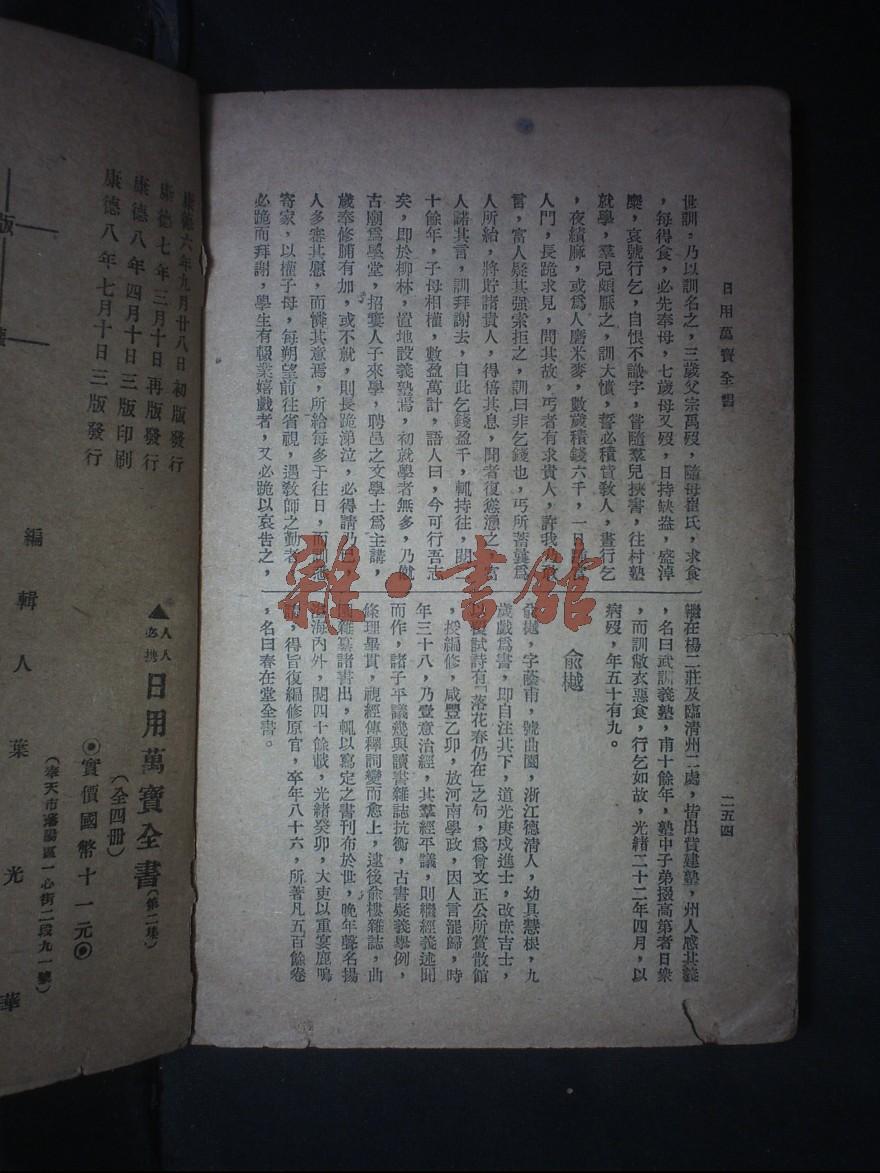 日用萬寶全書
二五四
世訓，乃以訓名之，三歲父宗禹歿，隨母崔氏，求食
，每得食，必先奉母，七歲母又歿，日持缺盎，盛淖
糜，哀號行乞，自恨不識字，嘗隨羣兒挾書，往村塾
就學，羣兒頗厭之，訓大憤，誓必積貲敎人，晝行乞
，夜績麻，或爲人磨米麥，數歲積錢六千，一日
人門，長跪求見，問其故，丐者有求貴人，許我乃敢
言，富人疑其强索拒之，訓曰非乞錢也，丐所蓄冀爲
人所給，將貯諸貴人，得倍其息，聞者復慫凴之，富
人諾其言，訓拜謝去，自此乞錢盈千，輒持往，閱
十餘年，子母相權，數盈萬計，語人曰，今可行吾志
矣，即於柳林，置地設義塾焉，初就學者無多，乃僦
古廟爲學堂，招寠人子來學，聘邑之文學士爲主講，
歲奉修脯有加，或不就，則長跪涕泣，必得請乃已，
人多審其愿，而憐其意焉，所給每多于往日，而訓悉
寄家，以權子母，每朔望前往省視，遇敎師之勤者，
必跪而拜謝，學生有輟業嬉戲者，又必跪以哀告之，
繼在楊二莊及臨淸州二處，皆出貲建塾，州人感其義
，名曰武訓義塾，甫十餘年，塾中子弟掇高第者日衆
，而訓敝衣惡食，行乞如故，光緖二十二年四月，以
病歿，年五十有九。
俞樾
俞樾，字蔭甫，號曲園，浙江德淸人，幼具慧根，九
歲戲爲書，即自注其下，道光庚戌進士，改庶吉士，
以復試詩有「落花春仍在」之句，爲曾文正公所賞散館
，授編修，咸豐乙卯，放河南學政，因人言罷歸，時
年三十八，乃壹意治經，其羣經平議，則繼經義述聞
而作，諸子平議幾與讀書雜誌抗衡，古書疑義舉例，
條理畢貫，視經傳釋詞變而愈上，遠後俞樓雜誌，曲
園雜纂諸書出，輒以寫定之書刊布於世，晚年聲名揚
溢海內外，閱四十餘載，光緖癸卯，大吏以重宴鹿鳴
，得旨復編修原官，卒年八十六，所著凡五百餘卷
，名曰春在堂全書。
雜·書館
版
康德六年九月廿八日初版發行
康德七年三月十日再版發行
康德八年四月十日三版印刷
康德八年七月十日三版發行
▲人人必携
日用萬寶全書（第二集）
（全四册）
◉實價國幣十一元◉
（奉天市瀋陽區一心街二段九一號）
編輯人葉光華